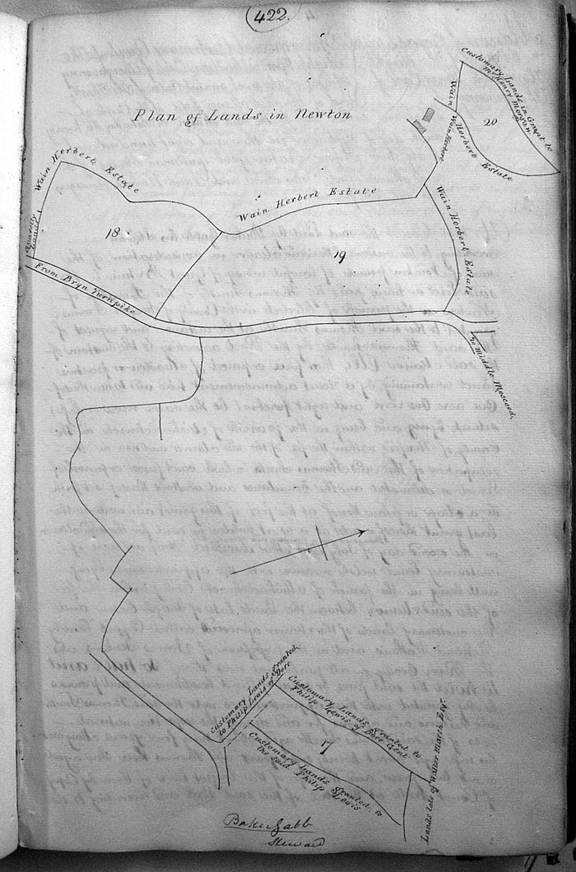 422.
Plan of Lands in Newton
Customary Lands in Grant to
McHenry Morgan
20
Wain Herbert
Wain Herbert Estate
Wain Herbert Estate
18
Wain Herbert Estate
19
Wain Herbert Estate
Customary Lands
From Bryn Turnpike
To Middle Moscoed.
Customary Lands granted
to Philip Lewis of
Customary Lands granted to
Philip Lewis of Gent
7
Customary Lands granted to
the said Philip
Lewis
Lands late of Walter Marsh Esqr.
Baker Gabb
Steward